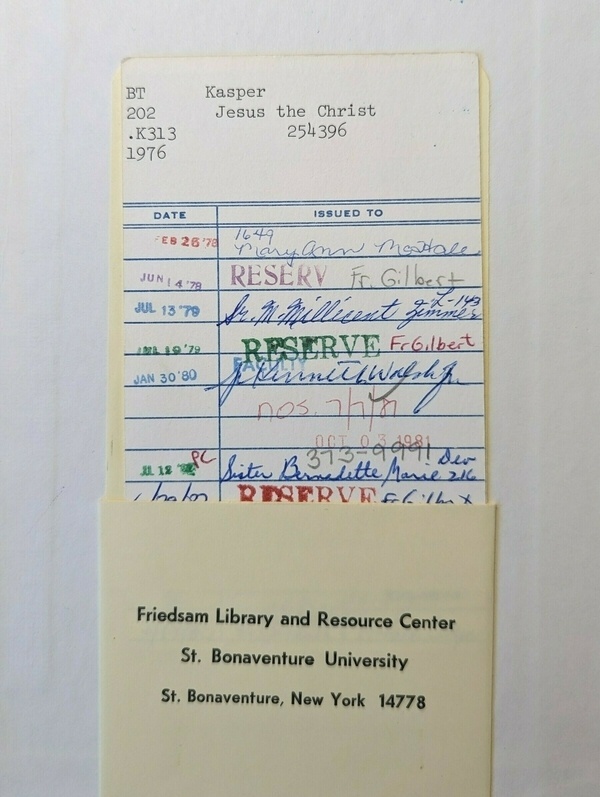 BT Kasper
202 Jesus the Christ
.K313 254396
1976
DATE ISSUED TO
1649
FEB 26 '78 Mary Ann McHale
JUN 14 '79 RESERV Fr. Gilbert
JUL 13 '79 Sr. M. Millicent Zimmer L-143
'79 RESERVE Fr Gilbert
FACULTY
JAN 30 '80
nos. 7/7/81
OCT 03 1981
373-9991
PC Sister Bernadette Marie Dev 216
RESERVE
Friedsam Library and Resource Center
St. Bonaventure University
St. Bonaventure, New York 14778